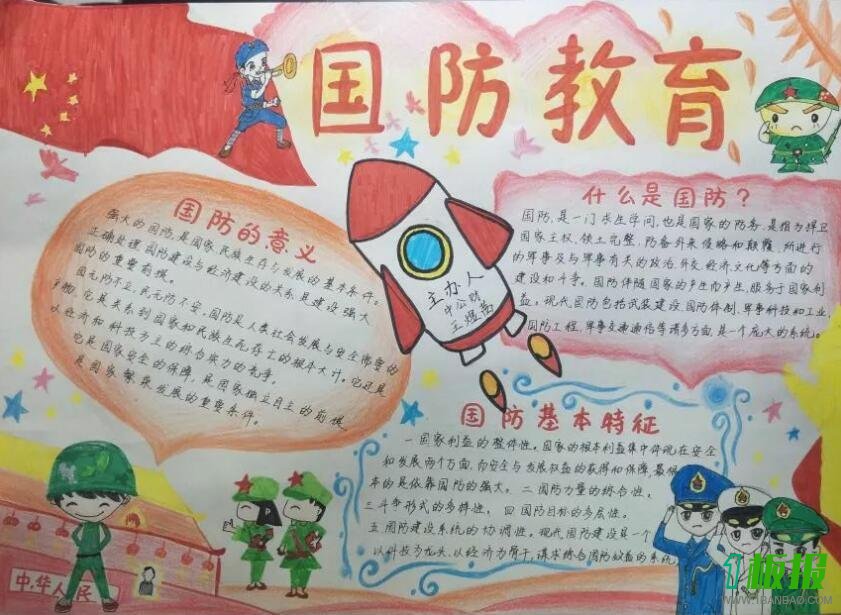 国防教育
国防的意义
强大的国防,是国家、民族生存与发展的基本条件。
正确处理国防建设与经济建设的关系,是建设强大
国防的重要前提。
国无防不立,民无防不安。国防是人类社会发展与安全需要的
产物,它是关系到国家和民族生死存亡的根本大计。它还是
以经济和科技为主的综合实力的竞争。
它是国家安全的保障,是国家独立自主的前提
是国家繁荣发展的重要条件。
主办人
王煜茜
什么是国防?
国防,是一门求生学问,也是国家的防务,是指为捍卫
国家主权、领土完整,防备外来侵略和颠覆,所进行
的军事及与军事有关的政治、外交、经济、文化等方面的
建设和斗争。国防伴随国家的产生而产生,服务于国家利
益。现代国防包括武装建设,国防体制,军事科技和工业,
国防工程,军事交通通信等诸多方面,是一个庞大的系统。
国防基本特征
一国家利益的整体性。国家的根本利益集中体现在安全
和发展两个方面,而安全与发展权益的获得和保障,最根
本的是依靠国防的强大。二国防力量的综合性。
三斗争形式的多样性。四国防目标的多层性。
五国防建设系统的协调性。现代国防建设是一个
以科技为龙头,以经济为骨干,课本综合国防效益的系统
中华人民
板报
WWW.1BANBAO.COM